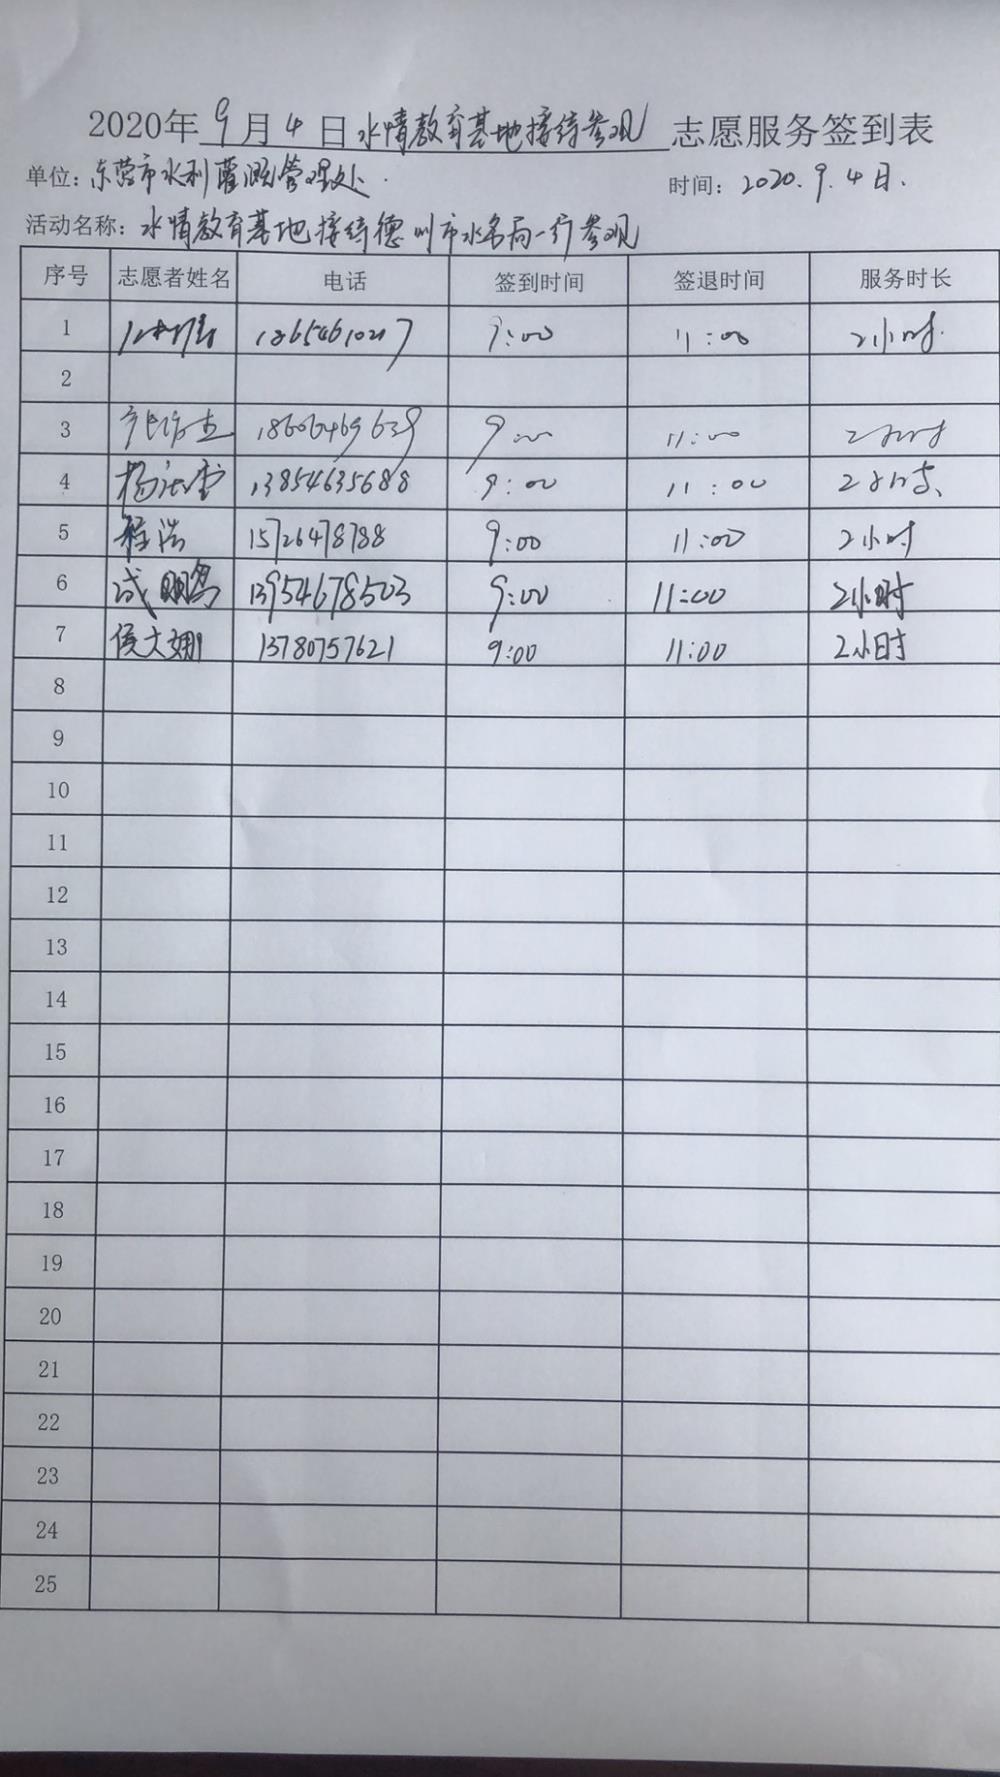 2020年 9 月 4 日 水情教育基地接待参观 志愿服务签到表
单位：东营市水利灌溉管理处. 时间：2020.9.4日.
活动名称：水情教育基地接待德州市水务局一行参观
序号 志愿者姓名 电话 签到时间 签退时间 服务时长
1 9:00 11:00 2小时.
2
3 18606469639 9:00 11:00 2小时
4 13854635688 9:00 11:00 2小时
5 程浩 15726478788 9:00 11:00 2小时
6 成鹏 13954678503 9:00 11:00 2小时
7 侯文姗 13780757621 9:00 11:00 2小时
8
9
10
11
12
13
14
15
16
17
18
19
20
21
22
23
24
25